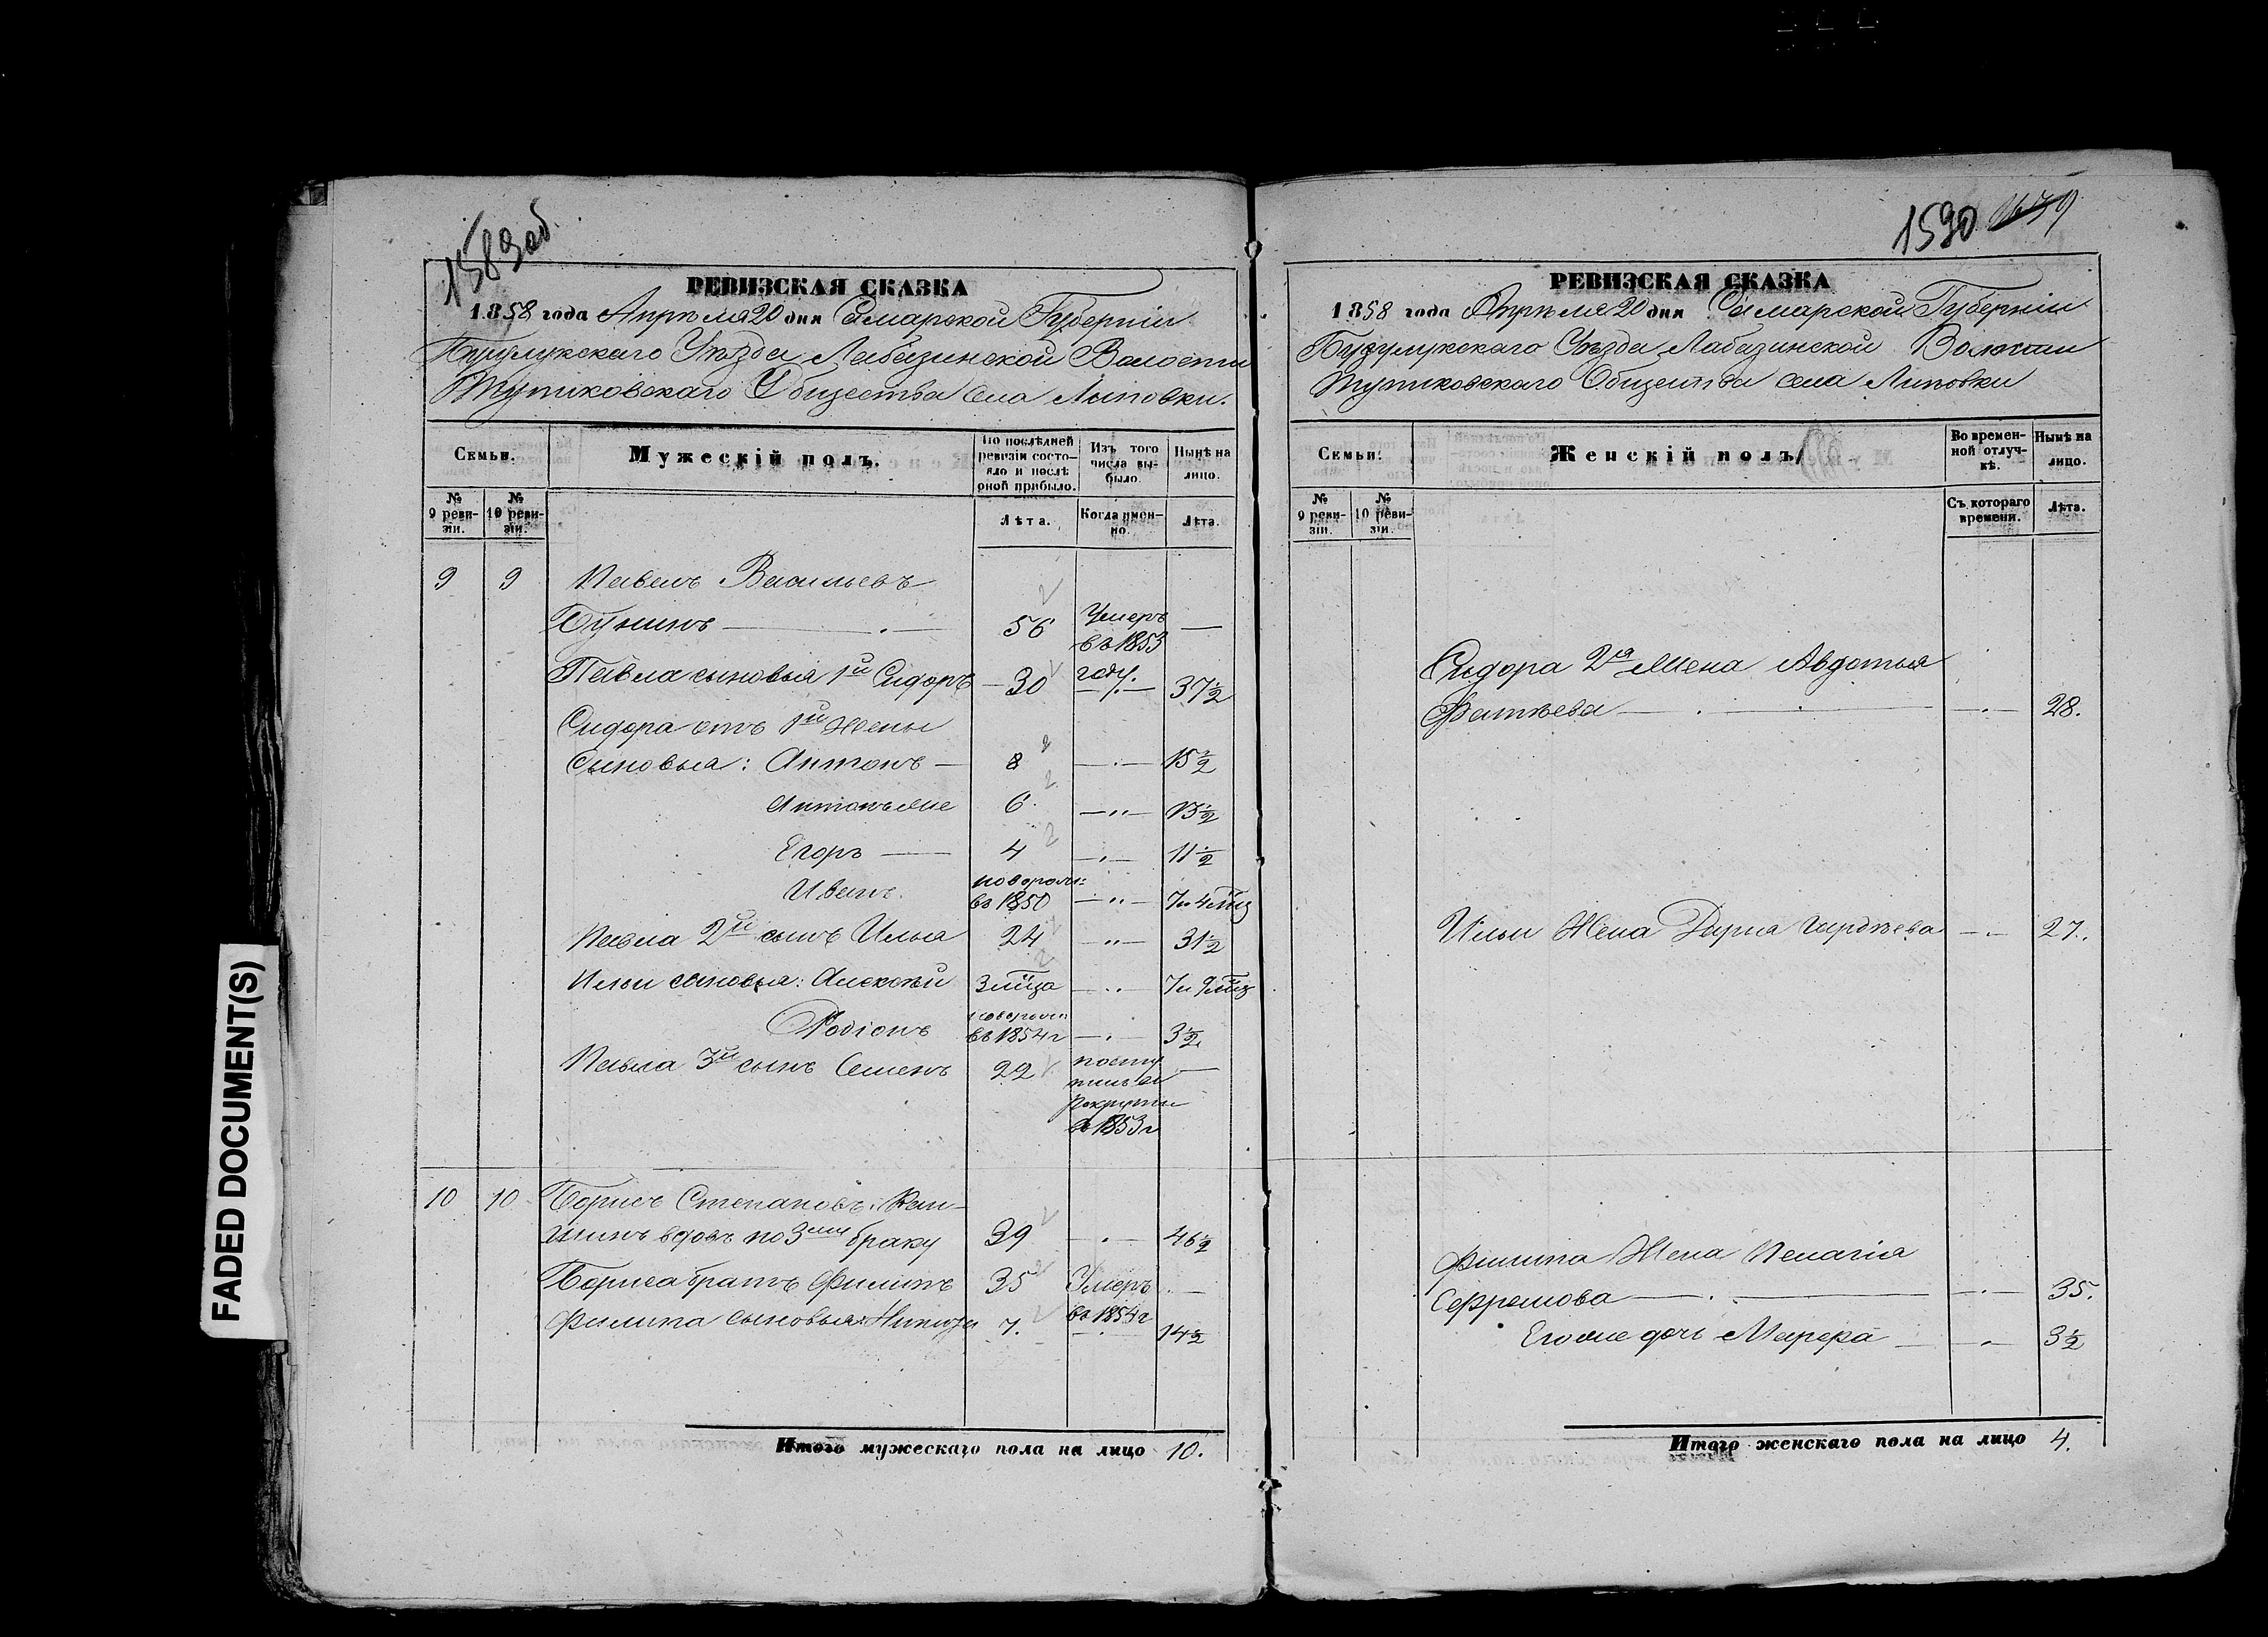 FADED DOCUMENT(S)
1589 об.
РЕВИЗСКАЯ СКАЗКА
1858 года Апрѣля 20 дня Самарской Губерніи
Бузулукскаго Уѣзда Лабазинской Волости
Тупиковскаго Общества села Липовки.
Семьи.
Мужескій полъ.
По послѣдней ревизіи состояло и послѣ оной прибыло.
Изъ того числа выбыло.
Нынѣ на лицо.
№ 9 ревизіи.
№ 10 ревизіи.
Лѣта.
Когда именно.
Лѣта.
9 9 Павелъ Васильевъ
Бунинъ — 56 Умеръ въ 1853 году. —
Павла сыновья 1й Сидоръ — 30 — 37½
Сидора отъ 1й жены
Сыновья: Антонъ — 8 — 15½
Антонъ же 6 — 13½
Егоръ — 4 — 11½
Иванъ. новорож: въ 1850 — 7 и 4 мѣц
Павла 2й сынъ Илья 24 — 31½
Ильи сыновья: Алексѣй 3 мѣца — 7 и 9 мѣц
Родіонъ новорож въ 1854 г — 3½
Павла 3й сынъ Семенъ 22 поступилъ въ рекруты въ 1853 г —
10 10 Борисъ Степановъ
вдовъ по 3му браку 39 — 46½
Бориса братъ Филипъ 35 Умеръ въ 1854 г —
Филипа сыновья: 7. — 14½
Итого мужескаго пола на лицо 10.
1590
РЕВИЗСКАЯ СКАЗКА
1858 года Апрѣля 20 дня Самарской Губерніи
Бузулукскаго Уѣзда Лабазинской Волости
Тупиковскаго Общества села Липовки
Семьи.
Женскій полъ
Во временной отлучкѣ.
Нынѣ на лицо.
№ 9 ревизіи.
№ 10 ревизіи.
Съ котораго времени.
Лѣта.
Сидора 2я жена Авдотья
Фатѣева — — 28.
Ильи Жена Дарья — 27.
Филипа Жена Пелагія
Ефремова — — 35.
Его же дочь — — 3½
Итого женскаго пола на лицо 4.